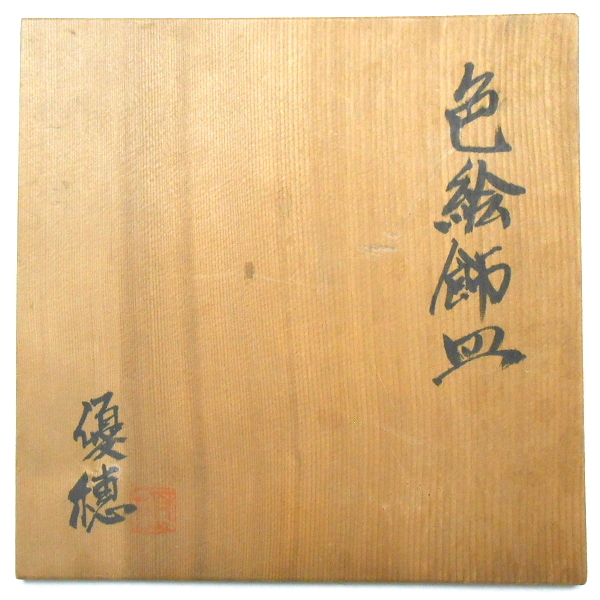 色絵飾皿
優穂